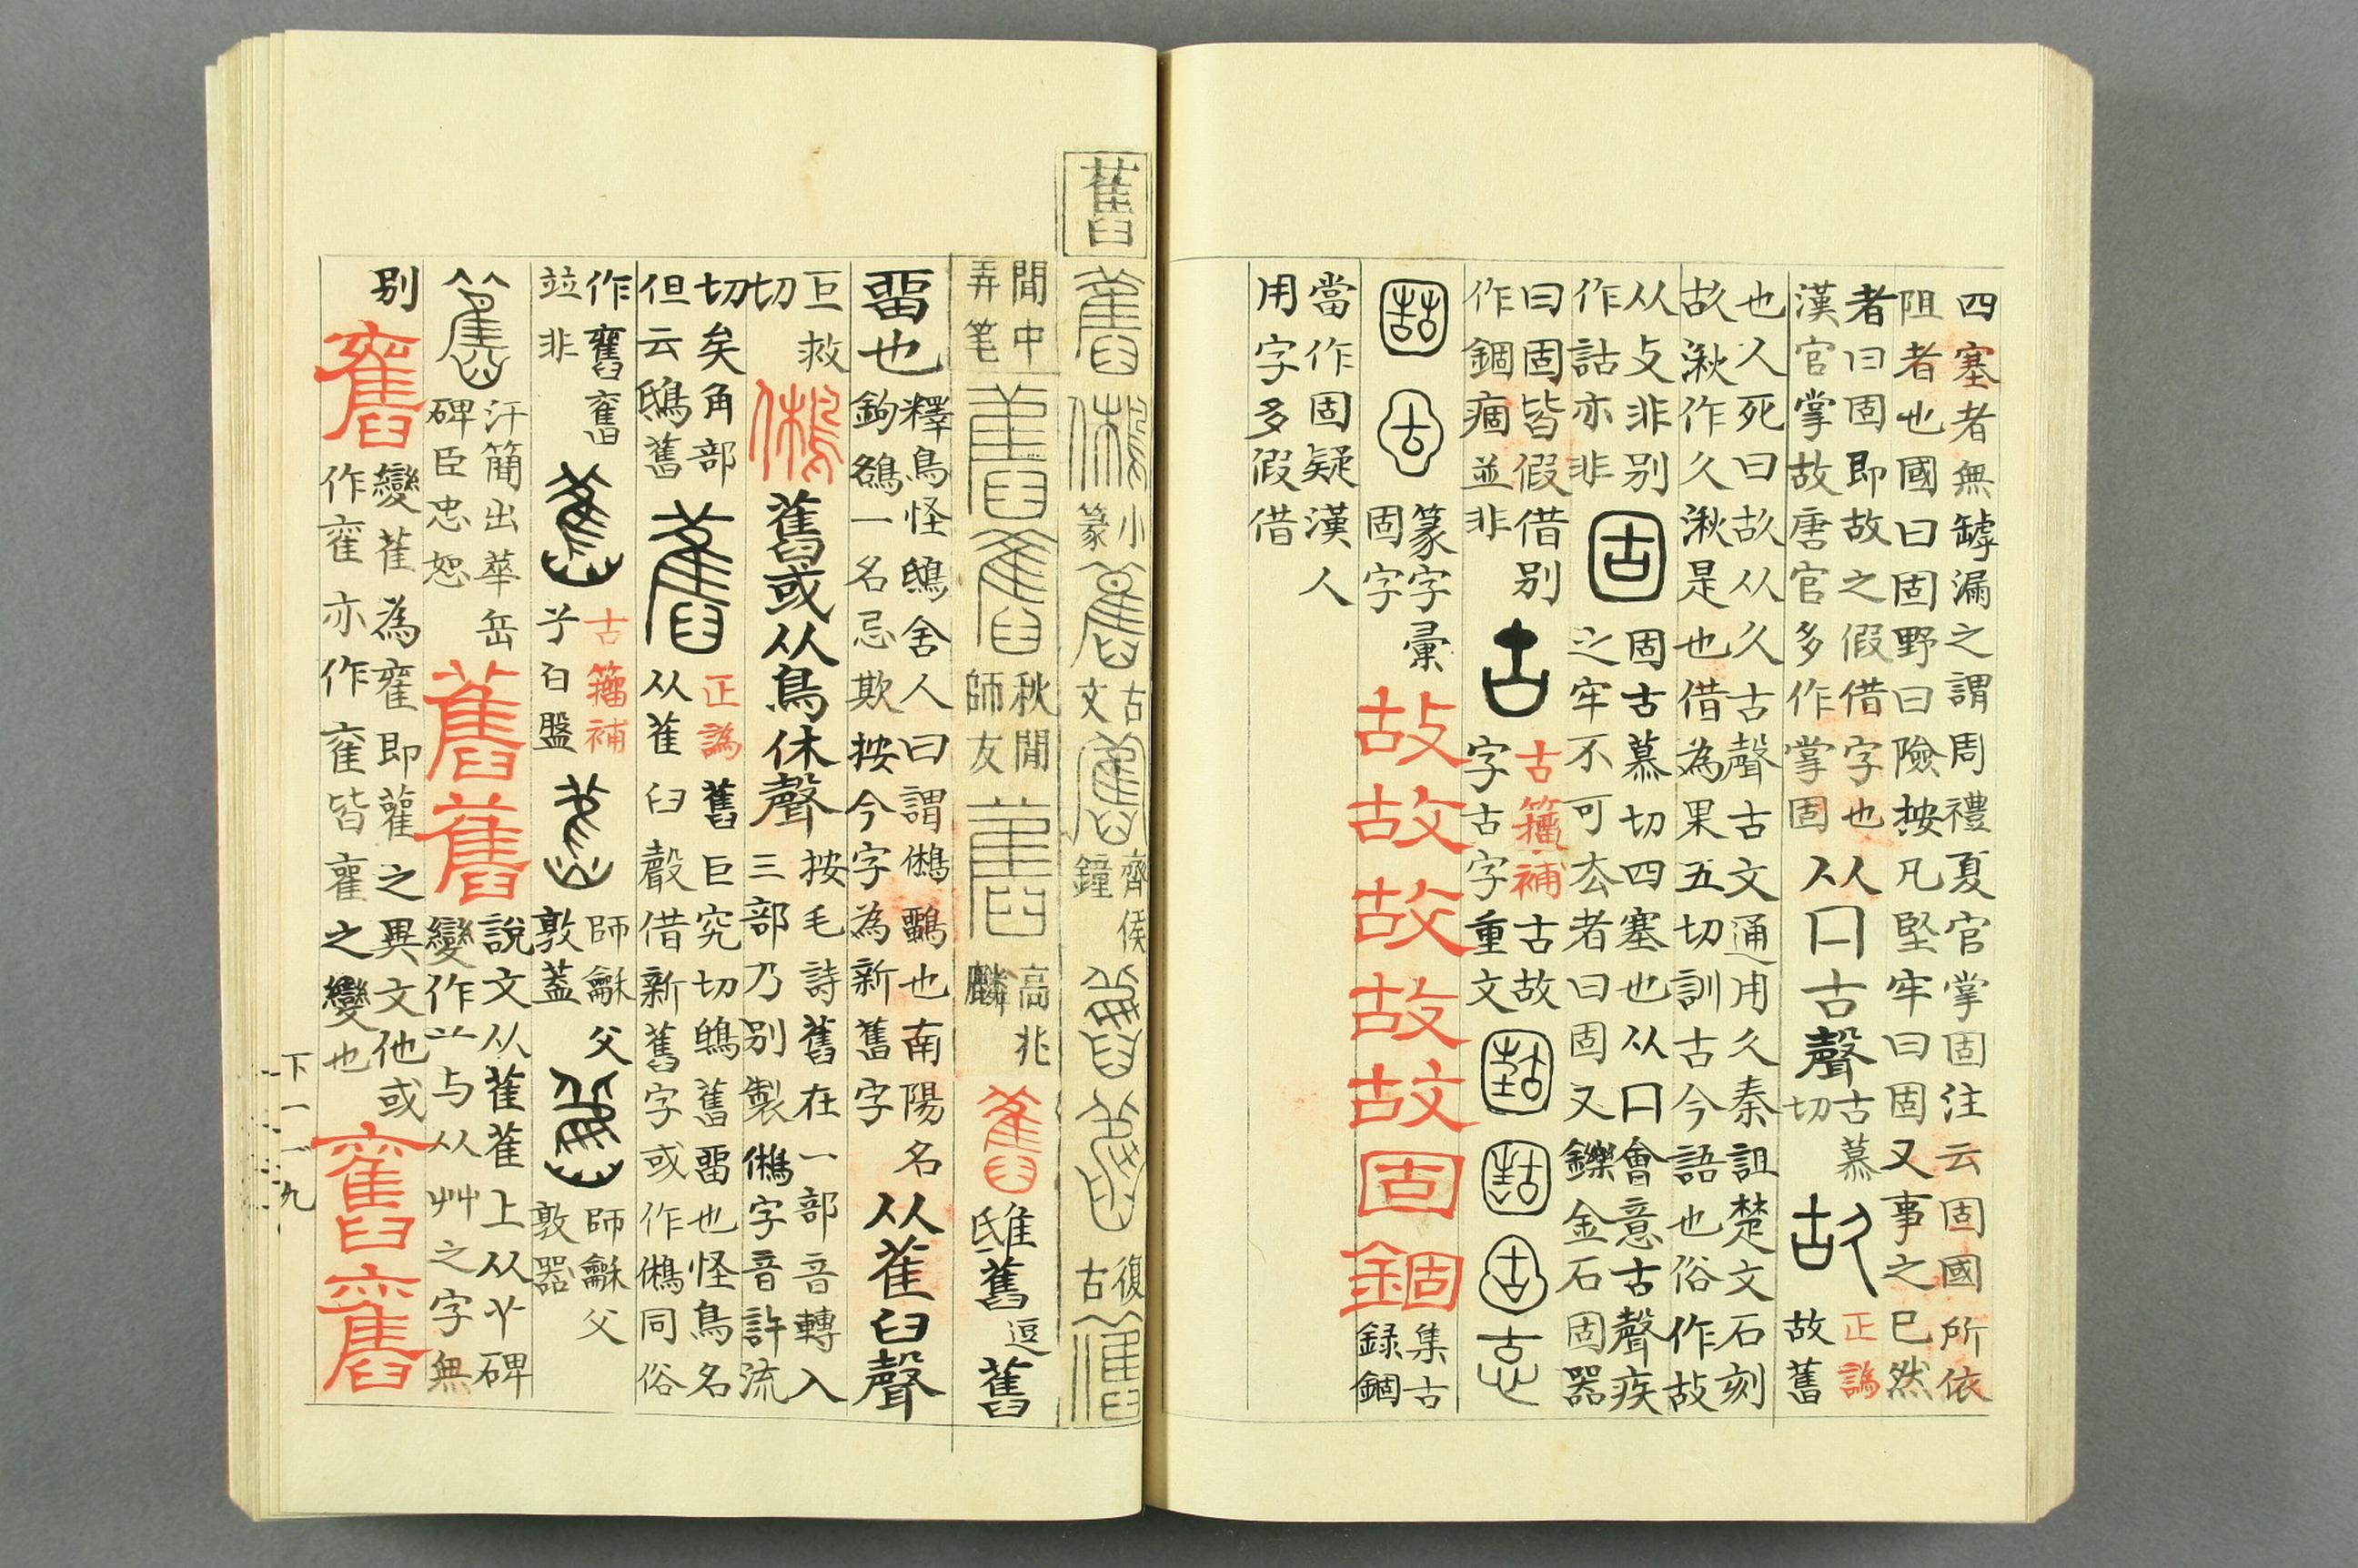 四塞者無罅漏之謂周禮夏官掌固注云固國所依
阻者也國曰固野曰險按凡堅牢曰固又事之已然
者曰固即故之假借字也
漢官掌故唐官多作掌固
从囗古聲
古慕
切
正譌
故舊
也人死曰故从久古聲古文通用久秦詛楚文石刻
故湫作久湫是也借為果五切訓古今語也俗作故
从攴非別
作詁亦非
固
固古慕切四塞也从囗會意古聲疾
之牢不可厺者曰固又鑠金石固器
曰固皆假借別
作錮痼並非
古
古籀補
古故
字古字重文
篆字彙
固字
故
故
故
故
故
固
錮
集古
録錮
當作固疑漢人
用字多假借
舊
舊
小
篆
古
文
齊侯
鐘
復
古
閒中
弄笔
秋閒
師友
高兆
麟
舊
雎舊
逗
舊
畱也
釋鳥怪鴟舍人曰謂鵂鶹也南陽名
鉤鵅一名忌欺按今字為新舊字
从萑臼聲
巨救
切
鵂
舊或从鳥休聲
按毛詩舊在一部音轉入
三部乃別製鵂字音許流
切矣角部
但云鴟舊
舊
正譌
舊巨究切鴟舊畱也怪鳥名
从萑臼聲借新舊字或作鵂同俗
作舊舊
竝非
古籀補
兮白盤
師龢父
敦蓋
師龢父
敦器
汗簡出華岳
碑臣忠恕
舊
舊
說文从萑萑上从丫碑
變作亠与从艸之字無
別
舊
變萑為雈即雚之異文他或
作雈亦作雈皆雈之變也
舊
舊
下一一九